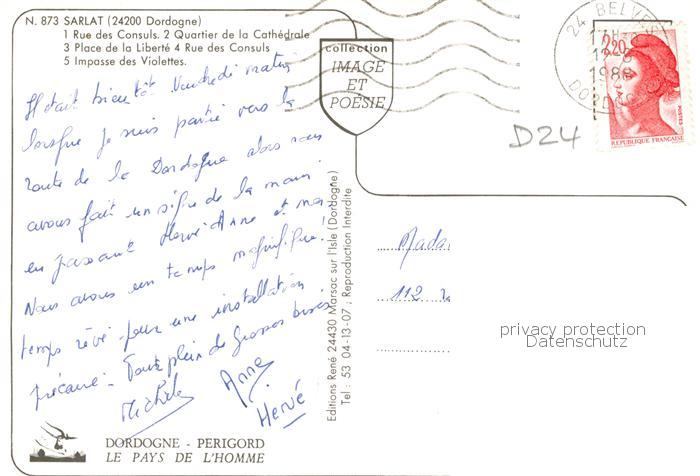 N. 873 SARLAT (24200 Dordogne)
1 Rue des Consuls. 2 Quartier de la Cathédrale
3 Place de la Liberté 4 Rue des Consuls
5 Impasse des Violettes.
collection
IMAGE
ET
POÉSIE
24 BELVES
17H
1986
DORDOGNE
2,20
POSTES
REPUBLIQUE FRANÇAISE
D24
Il était bientôt Vendredi matin
lorsque je suis partie vers la
route de la Dordogne alors nous
avons fait un signe de la main
en passant Hervé Anne et moi
Nous avons un temps magnifique!
temps rêvé pour une installation
précaire - Tout plein de grosses bises
Michèle Anne
Hervé
Editions René 24430 Marsac sur l'Isle (Dordogne)
Tel : 53 04-13-07 ; Reproduction Interdite
Mada
112
privacy protection
Datenschutz
DORDOGNE - PERIGORD
LE PAYS DE L'HOMME